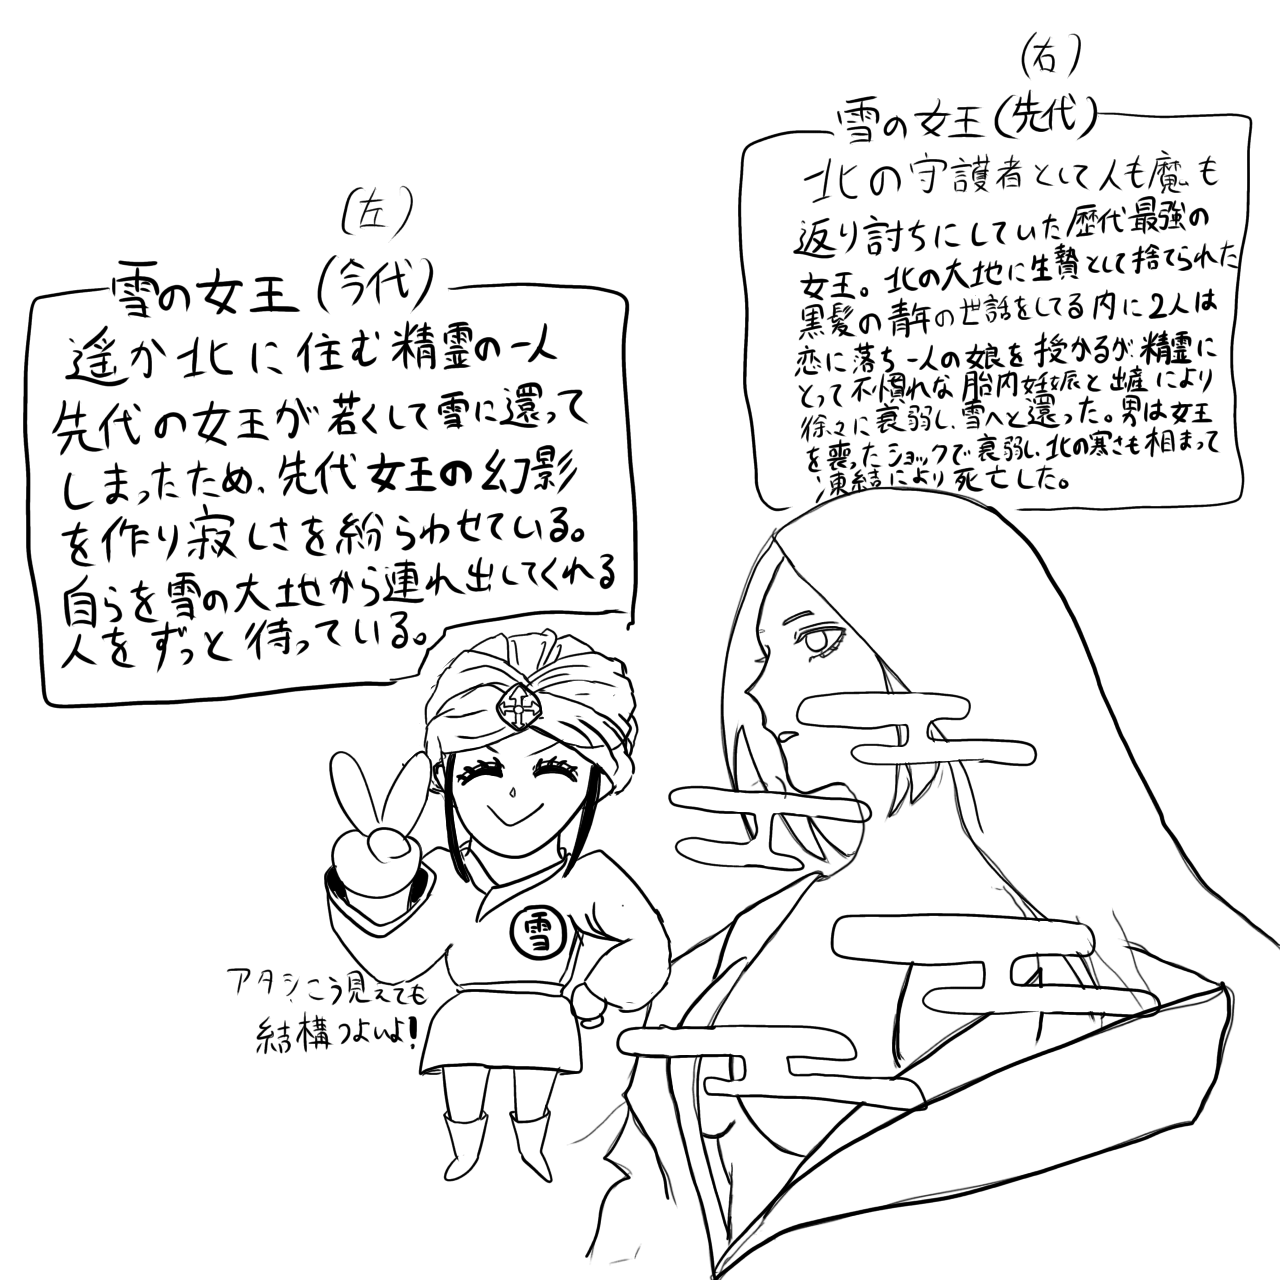 (右)
雪の女王(先代)
北の守護者として人も魔も
返り討ちにしていた歴代最強の
女王。北の大地に生贄として捨てられた
黒髪の青年の世話をしてる内に2人は
恋に落ち一人の娘を授かるが精霊に
とって不慣れな胎内妊娠と出産により
徐々に衰弱し、雪へと還った。男は女王
を喪ったショックで衰弱し、北の寒さも相まって
凍結により死亡した。
(左)
雪の女王(今代)
遥か北に住む精霊の一人
先代の女王が若くして雪に還って
しまったため、先代女王の幻影
を作り寂しさを紛らわせている。
自らを雪の大地から連れ出してくれる
人をずっと待っている。
雪
アタシこう見えても
結構つよいよ!